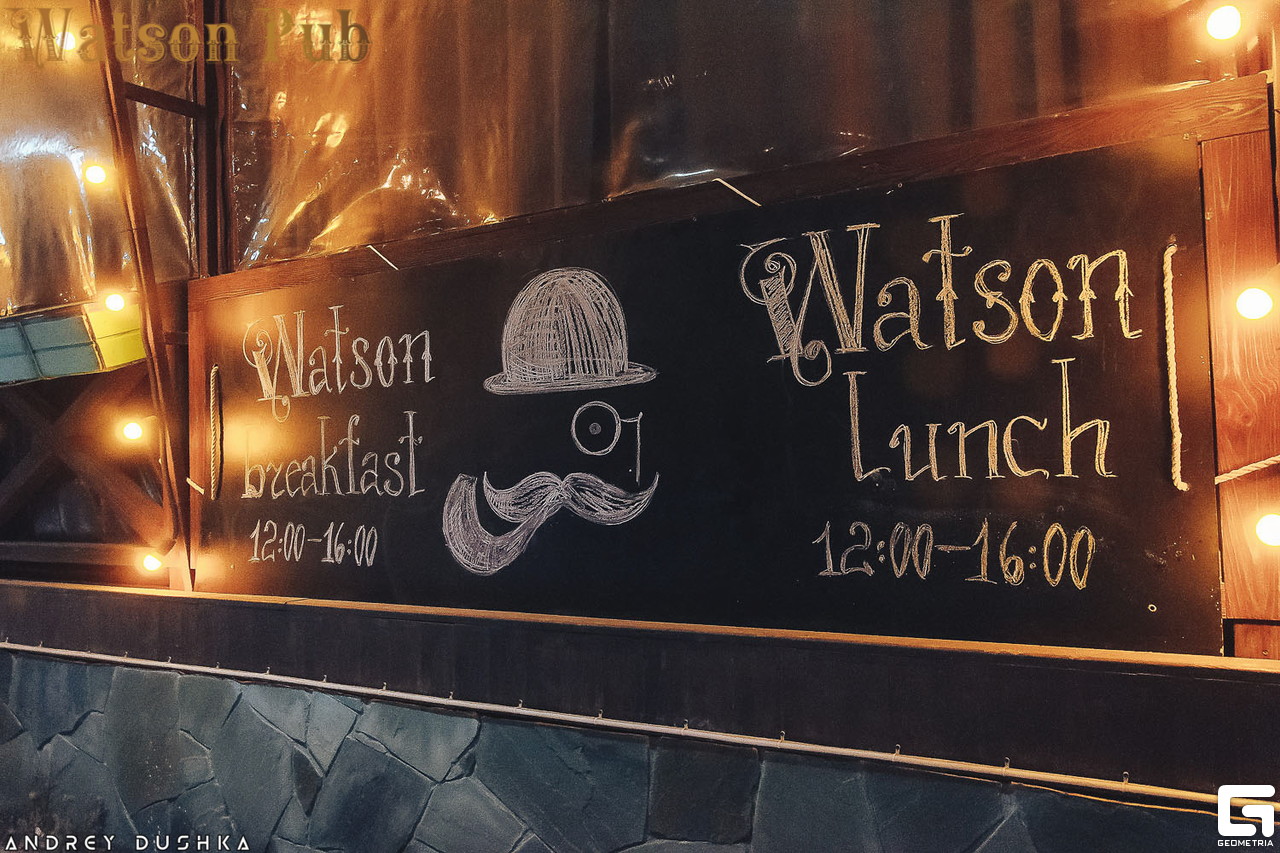 Watson Pub
Watson
breakfast
12:00-16:00
Watson
Lunch
12:00-16:00
ANDREY DUSHKA
GEOMETRIA